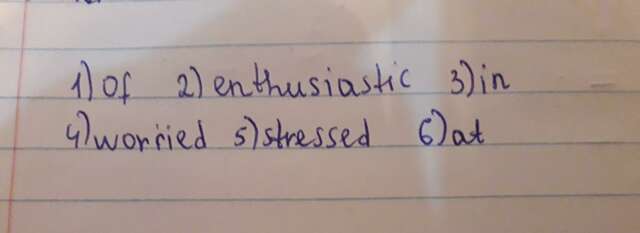 1) of 2) enthusiastic 3) in
4) worried 5) stressed 6) at